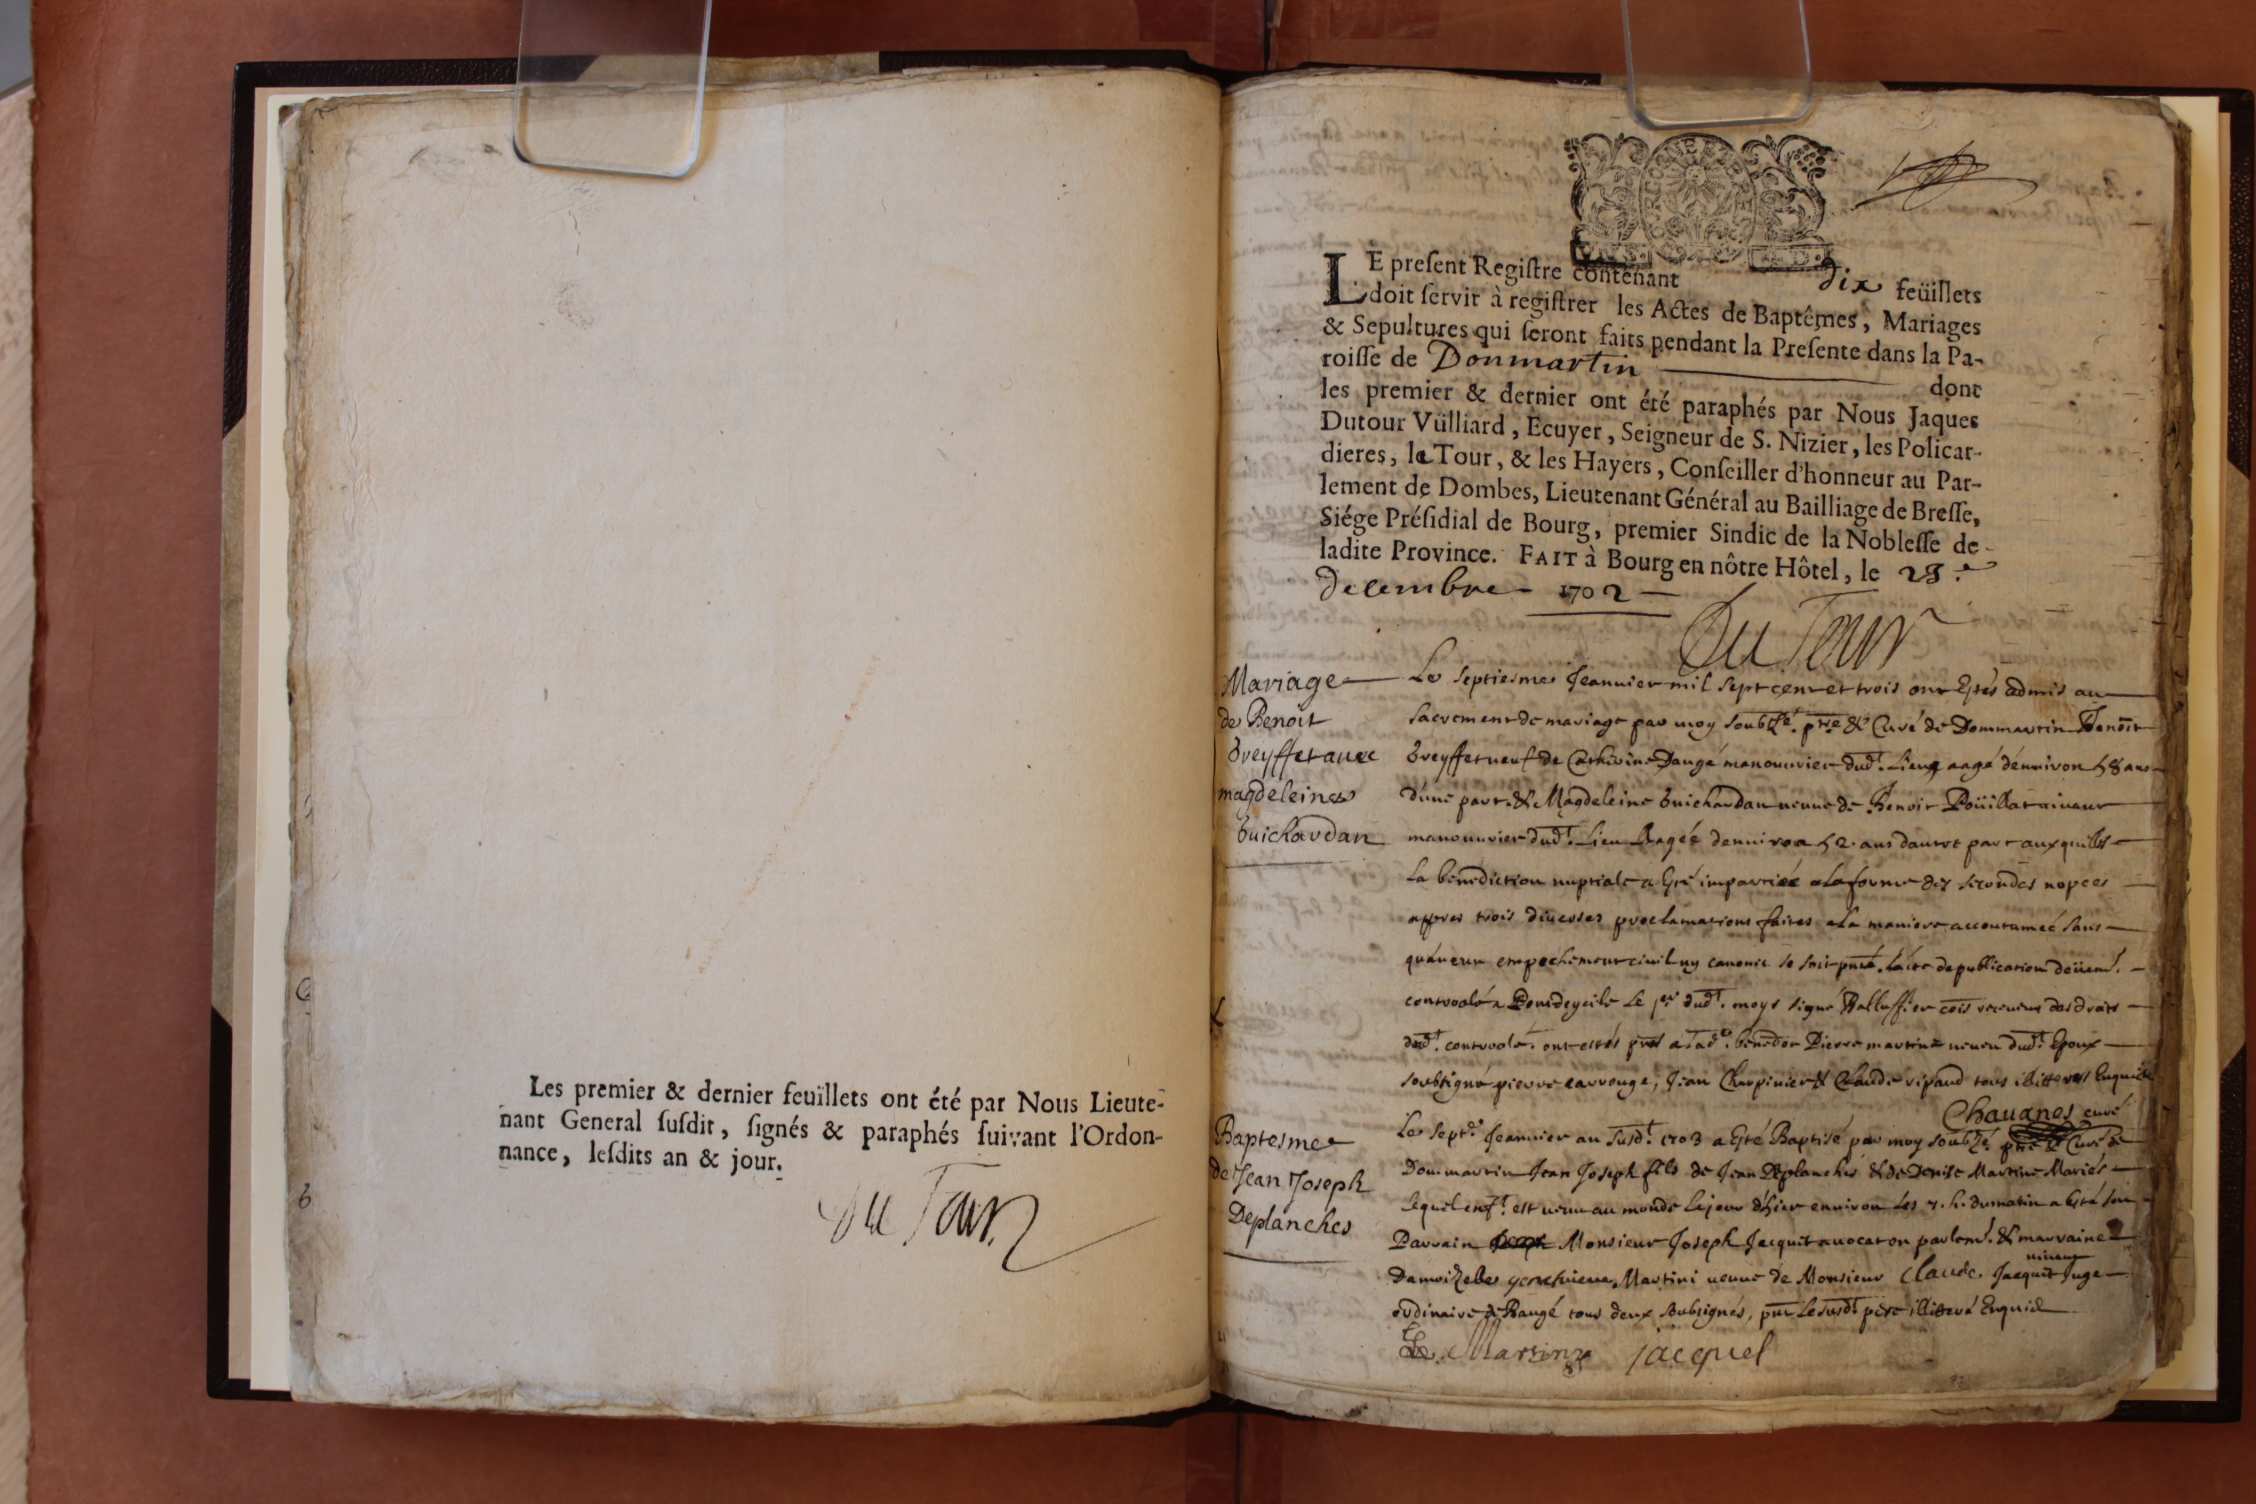 Les premier & dernier feuïllets ont été par Nous Lieute-
nant General susdit, signés & paraphés suivant l'Ordon-
nance, lesdits an & jour.
Du Tour
LE present Registre contenant dix feüillets
doit servir à registrer les Actes de Baptêmes, Mariages
& Sepultures qui seront faits pendant la Presente dans la Pa-
roisse de Donmartin dont
les premier & dernier ont été paraphés par Nous Jaques
Dutour Vülliard, Ecuyer, Seigneur de S. Nizier, les Policar-
dieres, la Tour, & les Hayers, Conseiller d'honneur au Par-
lement de Dombes, Lieutenant Général au Bailliage de Bresse,
Siége Présidial de Bourg, premier Sindic de la Noblesse de
ladite Province. FAIT à Bourg en nôtre Hôtel, le 28.e
decembre 1702
Du Tour
Mariage
de Benoit
Greyffet avec
magdeleine
Guichardan
Le septiesme Jeanvier mil sept cent et trois ont Estés admis au
sacrement de mariage par moy soubsé. ptre & Curé de Dommartin Benoit
Greyffet veuf de Catherine Daugé manouvrier dudt. Lieu aagé d'environ 58 ans
d'une part. & Magdeleine Guichardan veuve de Benoit Poüillat vivant
manouvrier dudt. Lieu Aagée denviron 52. ans dautre part auxquills
La benediction nuptiale a Esté impartiée a la forme des secondes nopces
appres trois diverses proclamations faites a la maniere accoutumeé sans
qu'aucun empechement civil ny canonic se soit pnté. lacte de publication deüemt.
controolé a Pondeveile Le 1er dudt. moys signé commis receveur des droits
dudt. controole. ont estés pnts a ladte. benedon Pierre martin neveu dudt. Epoux
soubsigné pierre carronge, Jean Charpinier & Claude ripaud tous illitterés Enquis
Chavanes curé
Baptesme
de Jean Joseph
Deplanches
Le septe. Jeanvier an susdt. 1703 a Esté Baptisé par moy soubsé. ptre & Curé de
Dommartin Jean Joseph fils de Jean Deplanches & de Denise Martine Mariés
Lequel enft. est venu au monde le jour d'hier environ les 7. h. du matin a Esté son
Parrain Monsieur Joseph Jacquet avocat en parlemt. & marraine
Damoizelle genevieve Martini veuve de Monsieur Claude Jacquet vivant Juge
ordinaire de Baugé tous deux soubsignés, pnt Le susdt. père illitteré Enquis
Martine jacquet